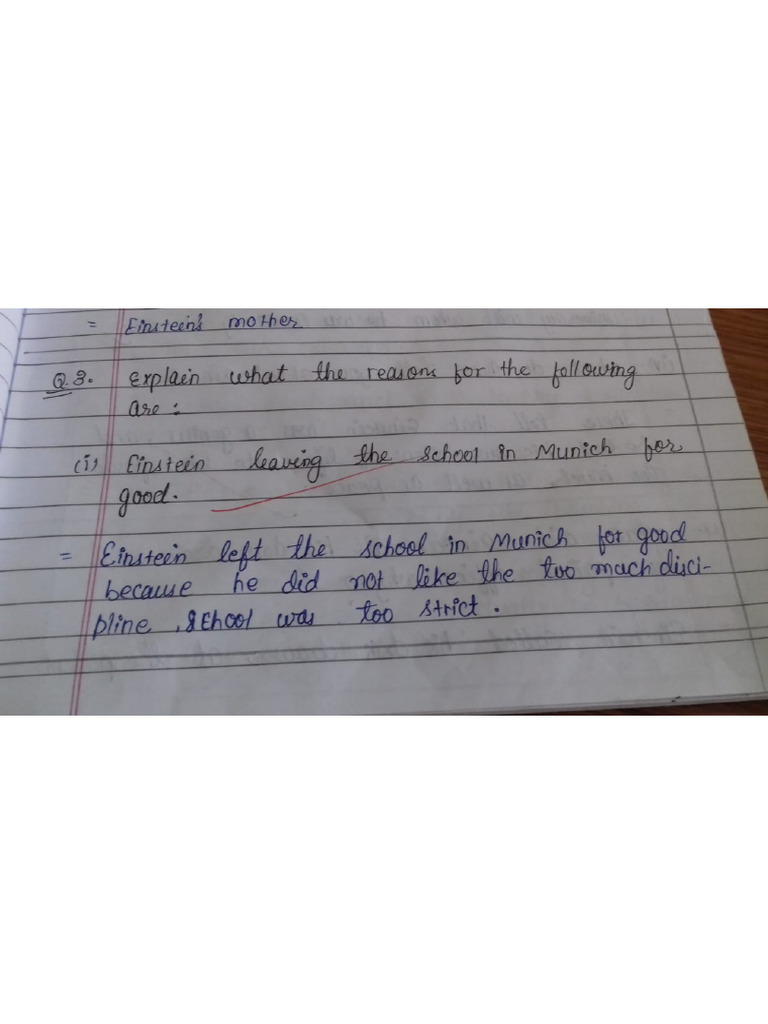 = Einstein's mother
Q.3. Explain what the reasons for the following
are :
(i) Einstein leaving the school in Munich for
good.
= Einstein left the school in Munich for good
because he did not like the too much disci-
pline, school was too strict.